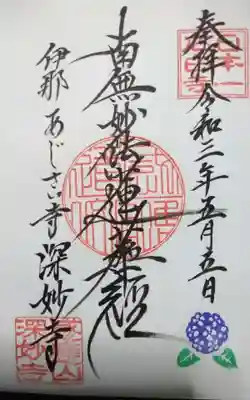 奉拝 令和三年五月五日
南無妙法蓮華経
伊那 あじさい寺 深妙寺